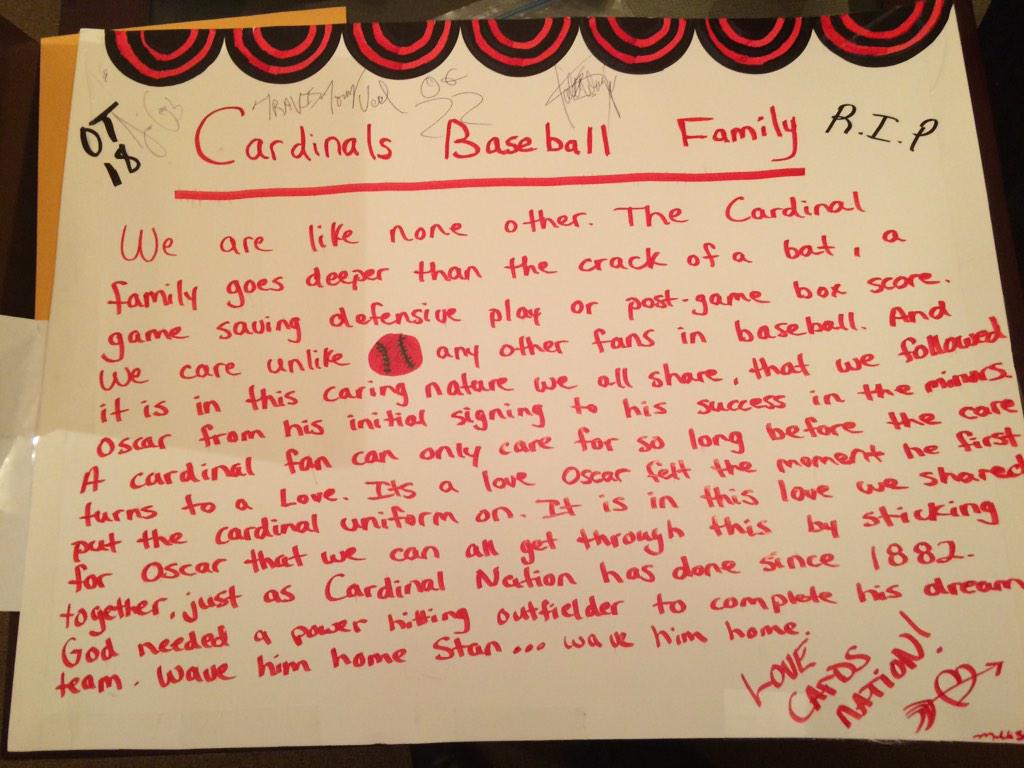 OT
18
R.I.P
Cardinals Baseball Family
We are like none other. The Cardinal
family goes deeper than the crack of a bat, a
game saving defensive play or post-game box score.
We care unlike any other fans in baseball. And
it is in this caring nature we all share, that we followed
Oscar from his initial signing to his success in the minors.
A cardinal fan can only care for so long before the care
turns to a Love. Its a love Oscar felt the moment he first
put the cardinal uniform on. It is in this love we shared
for Oscar that we can all get through this by sticking
together, just as Cardinal Nation has done since 1882.
God needed a power hitting outfielder to complete his dream
team. Wave him home Stan... wave him home.
LOVE
CARDS
NATION!